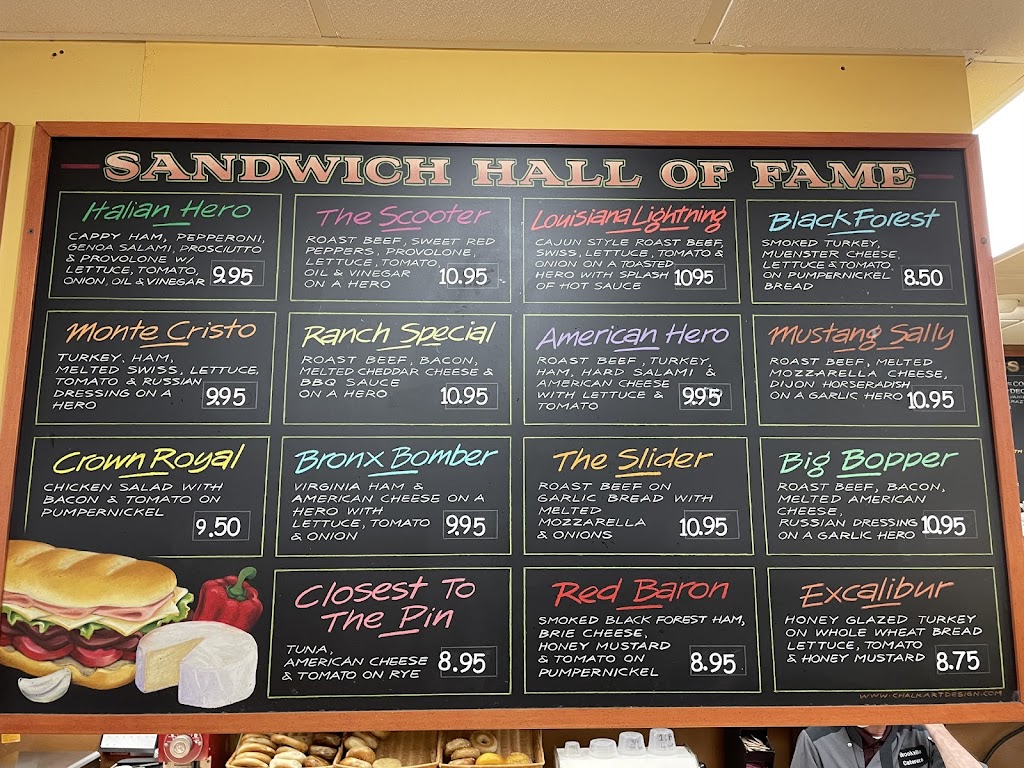 SANDWICH HALL OF FAME
Italian Hero
CAPPY HAM, PEPPERONI,
GENOA SALAMI, PROSCIUTTO
& PROVOLONE W/
LETTUCE, TOMATO,
ONION, OIL & VINEGAR 9.95
The Scooter
ROAST BEEF, SWEET RED
PEPPERS, PROVOLONE,
LETTUCE, TOMATO,
OIL & VINEGAR
ON A HERO 10.95
Louisiana Lightning
CAJUN STYLE ROAST BEEF,
SWISS, LETTUCE, TOMATO &
ONION ON A TOASTED
HERO WITH SPLASH
OF HOT SAUCE 10.95
Black Forest
SMOKED TURKEY,
MUENSTER CHEESE,
LETTUCE & TOMATO
ON PUMPERNICKEL
BREAD 8.50
Monte Cristo
TURKEY, HAM,
MELTED SWISS, LETTUCE,
TOMATO & RUSSIAN
DRESSING ON A
HERO 9.95
Ranch Special
ROAST BEEF, BACON,
MELTED CHEDDAR CHEESE &
BBQ SAUCE
ON A HERO 10.95
American Hero
ROAST BEEF, TURKEY,
HAM, HARD SALAMI &
AMERICAN CHEESE
WITH LETTUCE &
TOMATO 9.95
Mustang Sally
ROAST BEEF, MELTED
MOZZARELLA CHEESE,
DIJON HORSERADISH
ON A GARLIC HERO 10.95
Crown Royal
CHICKEN SALAD WITH
BACON & TOMATO ON
PUMPERNICKEL
9.50
Bronx Bomber
VIRGINIA HAM &
AMERICAN CHEESE ON A
HERO WITH
LETTUCE, TOMATO
& ONION 9.95
The Slider
ROAST BEEF ON
GARLIC BREAD WITH
MELTED
MOZZARELLA
& ONIONS 10.95
Big Bopper
ROAST BEEF, BACON,
MELTED AMERICAN
CHEESE,
RUSSIAN DRESSING
ON A GARLIC HERO 10.95
Closest To
The Pin
TUNA,
AMERICAN CHEESE
& TOMATO ON RYE 8.95
Red Baron
SMOKED BLACK FOREST HAM,
BRIE CHEESE,
HONEY MUSTARD
& TOMATO ON
PUMPERNICKEL 8.95
Excalibur
HONEY GLAZED TURKEY
ON WHOLE WHEAT BREAD
LETTUCE, TOMATO
& HONEY MUSTARD 8.75
WWW.CHALKARTDESIGN.COM